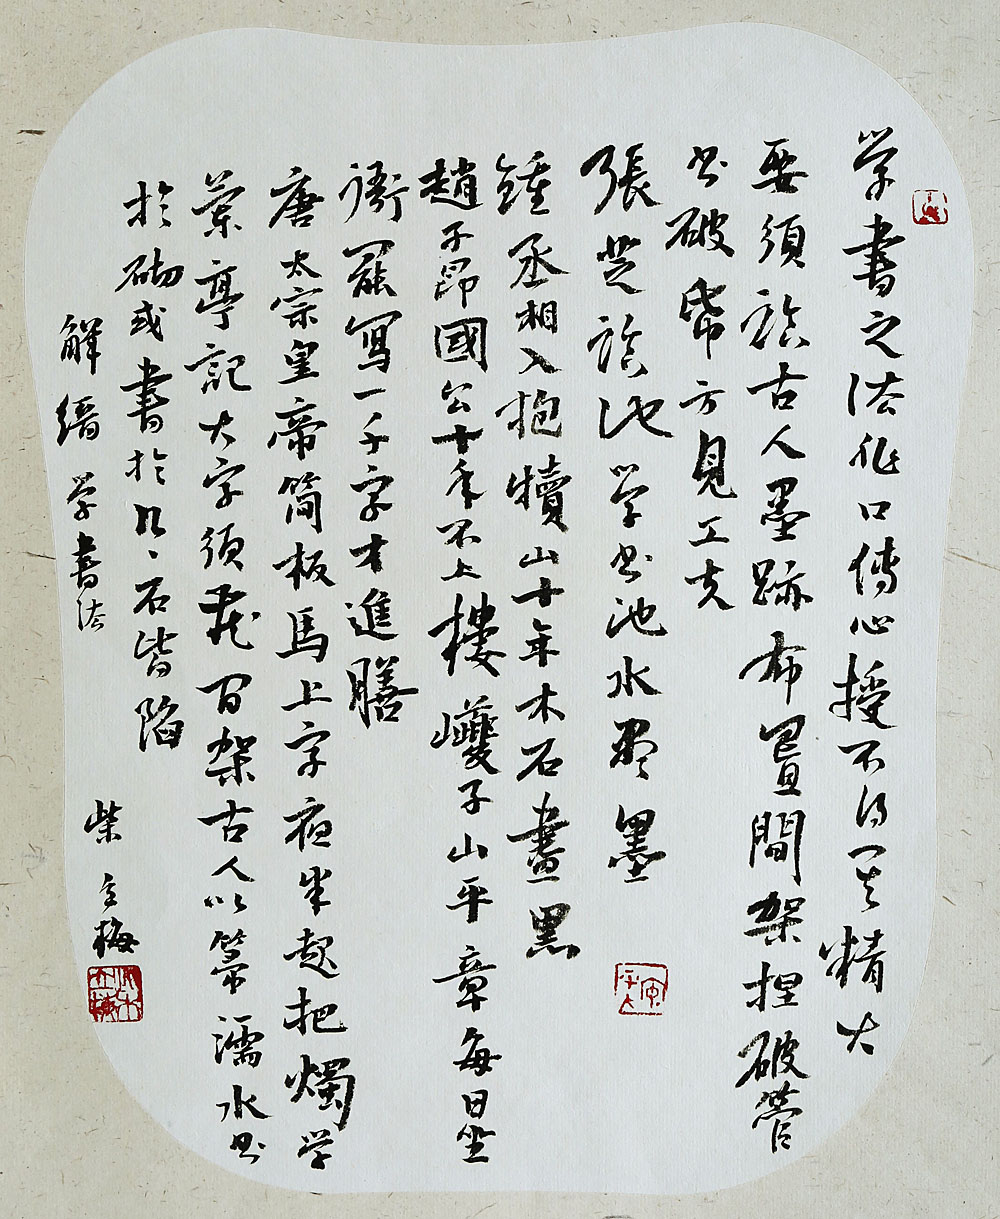 学書之法非口傳心授不得其精大
要須臨古人墨跡布置間架捏破管
书破帋方見工夫
張芝臨池学书池水盡墨
鍾丞相入抱犢山十年木石盡黑
趙子昂國公十年不上樓巙子山平章每日坐
衙罷寫一千字才進膳
唐太宗皇帝简板馬上字夜半起把燭学
蘭亭記大字須藏间架古人以箒濡水书
於砌或書於几几石皆陷
解縉学書法
柴立梅